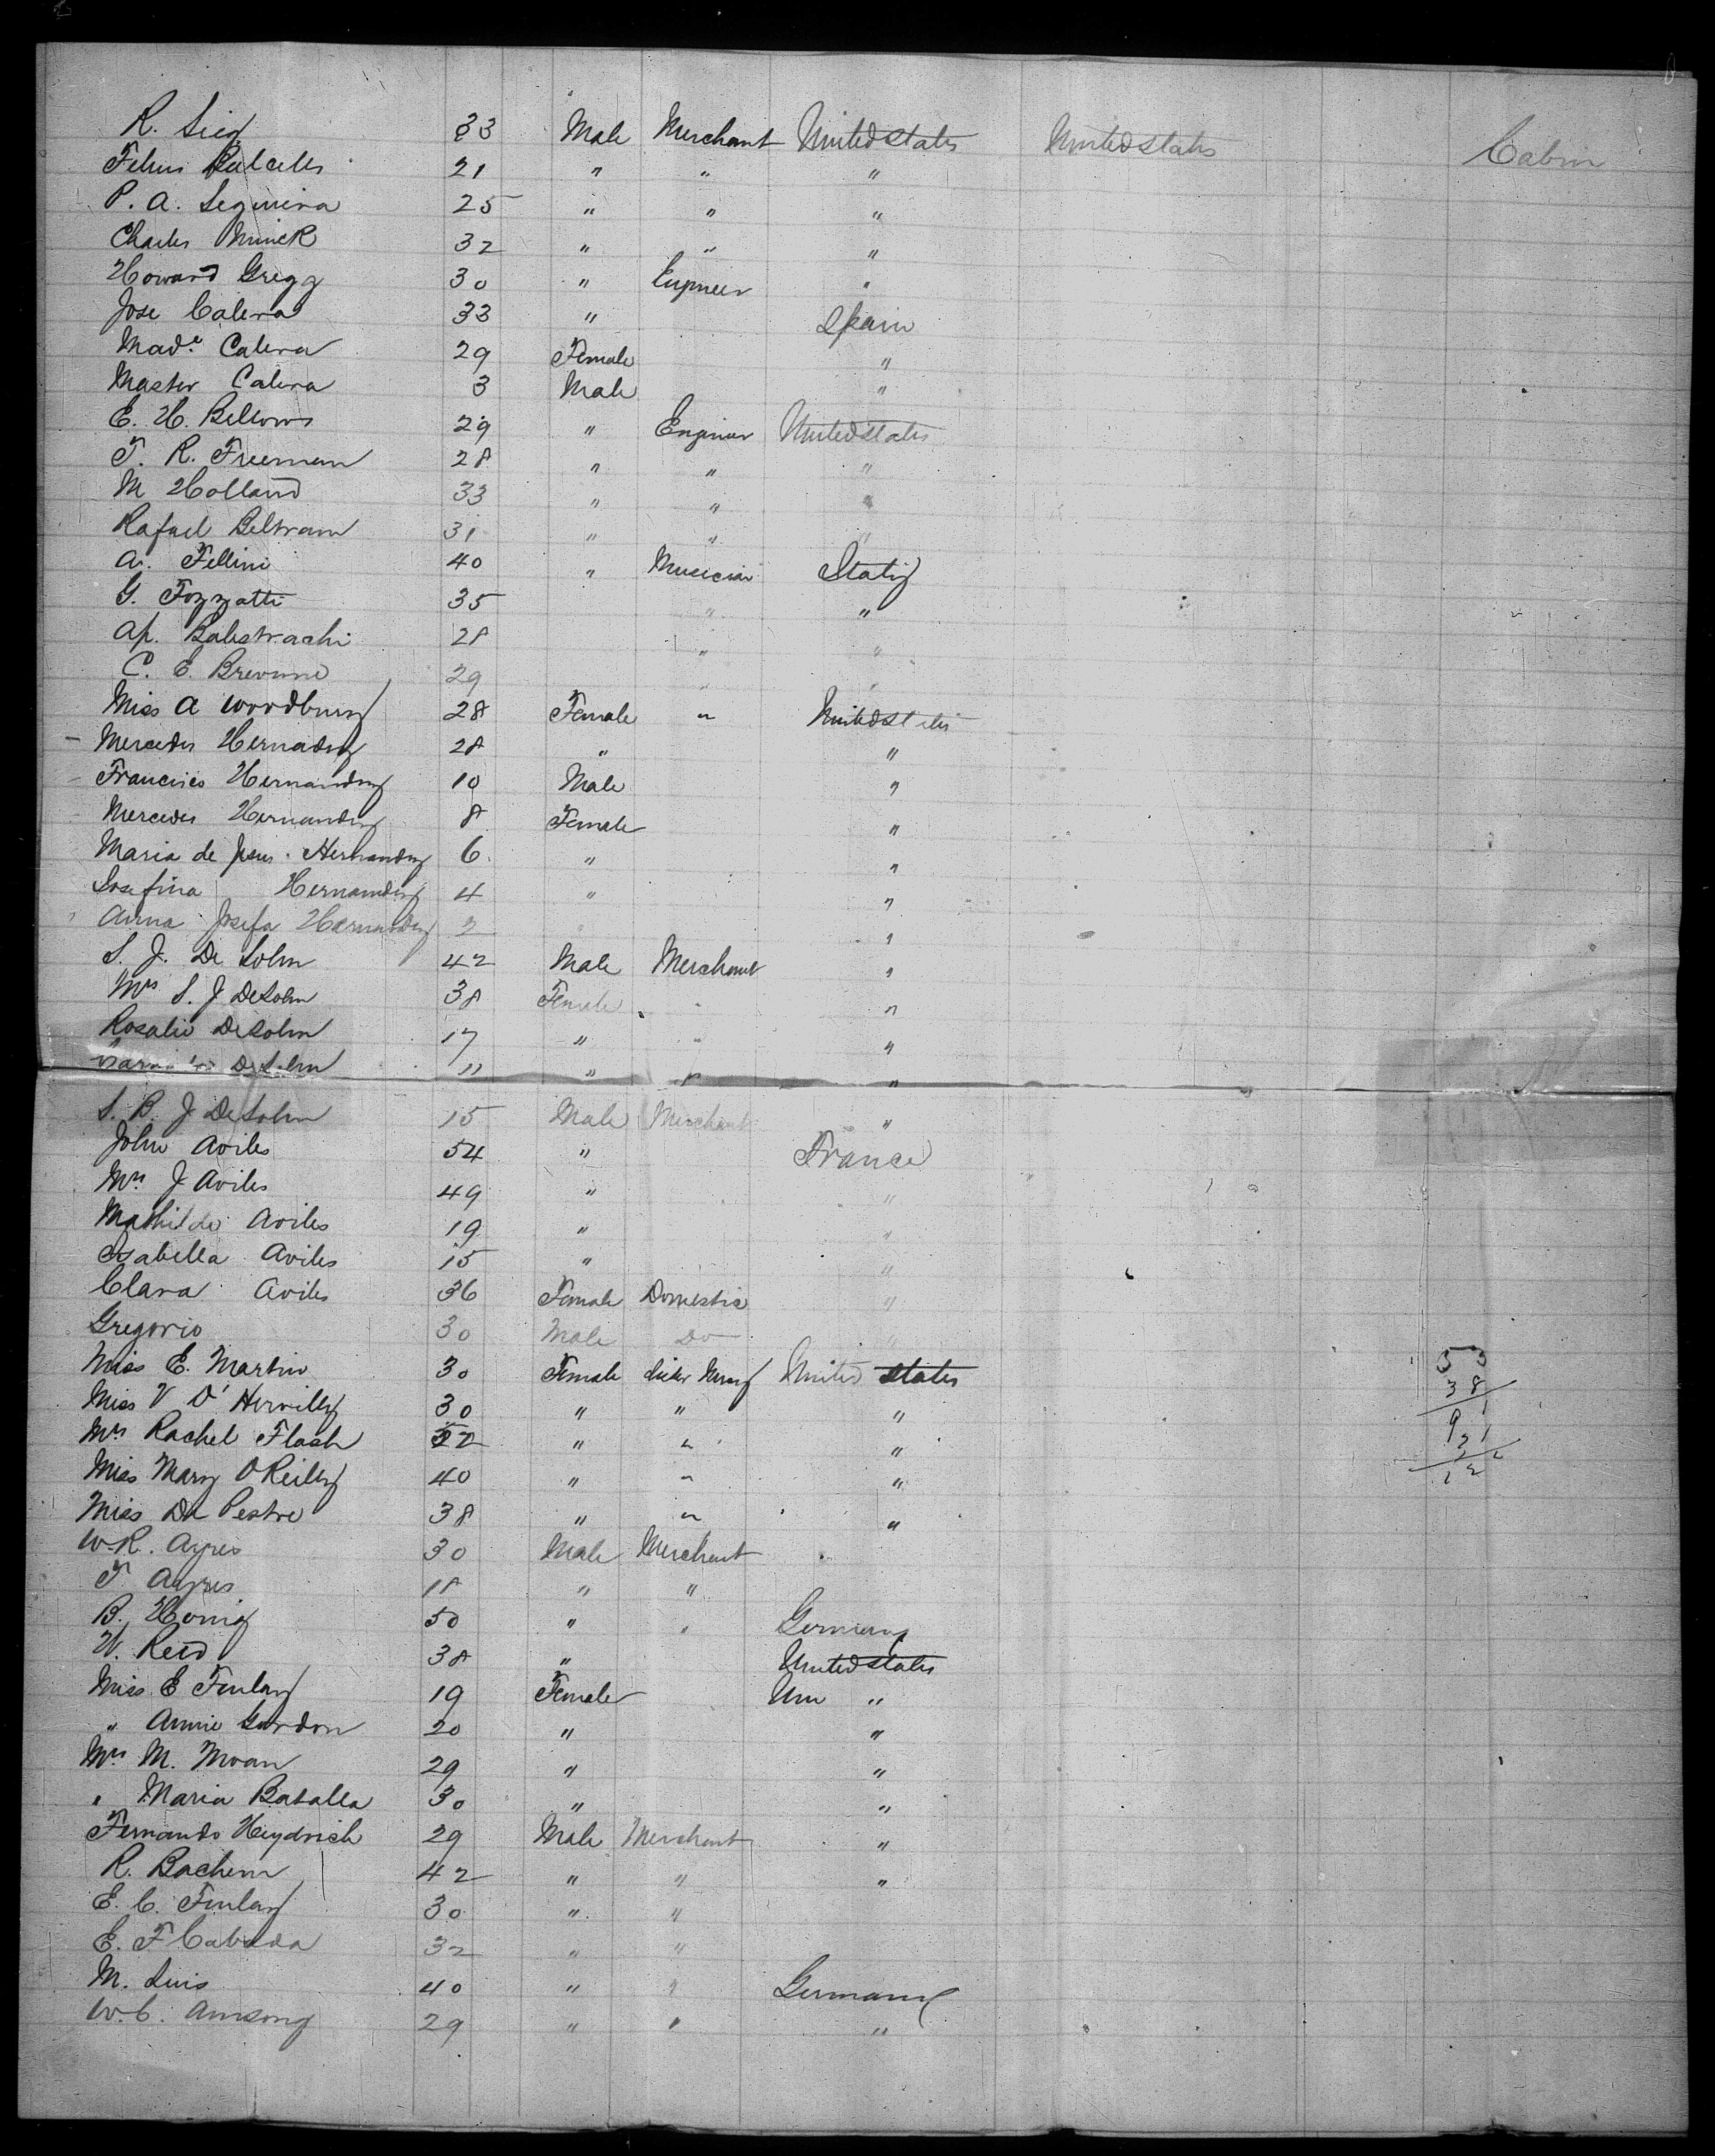 R. Sieg 33 Male Merchant United States United States Cabin
Felius Balcells 21 " " "
P. A. Segmira 25 " " "
Charles Minick 32 " " "
Howard Gregg 30 " Engineer "
Jose Calera 33 " Spain
Made. Calera 29 Female "
Master Calera 3 Male "
E. H. Bellows 29 " Engineer United States
T. R. Freeman 28 " " "
M Holland 33 " " "
Rafael Beltram 31 " " "
A. Fellini 40 " Musician Italy
G. Fozzatti 35 " "
Ap. Balestrachi 28 " "
C. E. 29 " "
Miss A Woodbury 28 Female " United States
Mercedes Hernadez 28 " "
Francisco Hernandez 10 Male "
Mercedes Hernandez 8 Female "
Maria de Jesus Hernandez 6 " "
Josefina Hernandez 4 " "
Anna Josefa Hernandez 2 "
S. J. De Solm 42 Male Merchant "
Mrs S. J DeSolm 38 Female " "
Rosalie DeSolm 17 " " "
DeSolm 11 " " "
S. B. J DeSolm 15 Male Merchant "
John Aviles 54 " France
Mrs J Aviles 49 " "
Mathilde Aviles 19 " "
Isabella Aviles 15 " "
Clara Aviles 36 Female Domestic "
Gregorio 30 Male Do "
Miss E. Martin 30 Female Sister Mercy United States
Miss V D'Hervilly 30 " " "
Mrs Rachel Flash 52 " " "
Miss Mary OReilly 40 " " "
Miss De Pestre 38 " " "
W. R. Ayres 30 Male Merchant "
T Ayres 18 " "
B. Honig 50 " " Germany
W. Reed 38 " United States
Miss E Finlay 19 Female Uni "
" Annie Gordon 20 " "
Mrs M. Moan 29 " "
" Maria Batalla 30 " "
Fernando Heydrich 29 Male Merchant "
R. Bachem 42 " " "
E. C. Finlay 30 " "
E. F Cabada 32 " "
M. Luis 40 " " Germany
W. C. 29 " " "
53
38
91